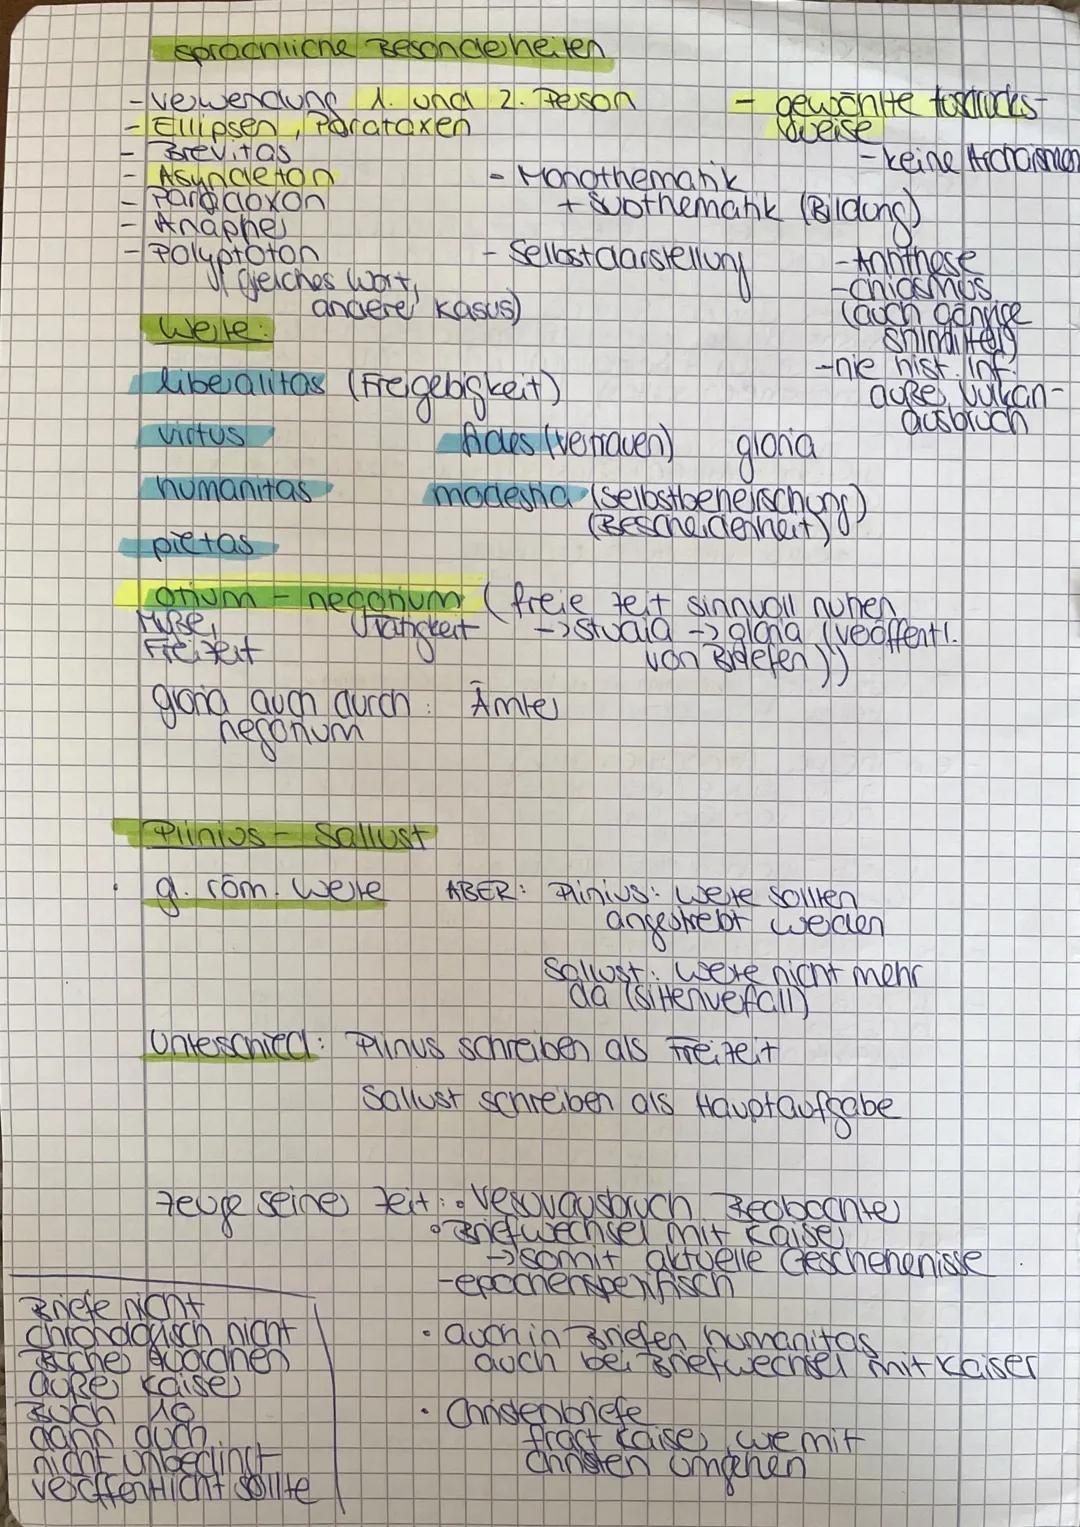 sprachliche Besonderheiten
- Verwendung 1. und 2. Person
- Ellipsen, Parataxen
- Brevitas
- Asyndeton
- Paradoxon
- Anapher
- Polyptoton
(gleiches Wort,
anderer Kasus)
- gewählte Ausdrucks-
weise
- keine Archaismen
- Monothematik
+ Subthematik (Bildung)
- Selbstdarstellung
- Antithese
- Chiasmus
(auch gängige
Stilmittel)
- nie hist. Inf.
außer Vulkan-
ausbruch
Werte:
liberalitas (Freigebigkeit)
virtus fides (Vertrauen) gloria
humanitas modestia (Selbstbeherrschung)
(Bescheidenheit)
pietas
otium - negotium (freie Zeit sinnvoll nutzen
Muße, Tätigkeit -> studia -> gloria (veröffentl.
Freizeit von Briefen))
gloria auch durch: Ämter
negotium
Plinius - Sallust
g. röm. Werte ABER: Plinius: Werte sollten
angestrebt werden
Sallust: Werte nicht mehr
da (Sittenverfall)
Unterschied: Plinius schreiben als Freizeit
Sallust schreiben als Hauptaufgabe
Zeuge seiner Zeit: • Vesuvausbruch Beobachter
• Briefwechsel mit Kaiser
-> somit aktuelle Geschehenisse
- epochenspezifisch
• auch in Briefen humanitas
auch bei Briefwechsel mit Kaiser
• Christenbriefe
fragt Kaiser, wie mit
Christen umgehen
Briefe nicht
chronologisch nicht
außer Kaiser
Buch 10
dann auch
nicht unbedingt
veröffentlicht sollte